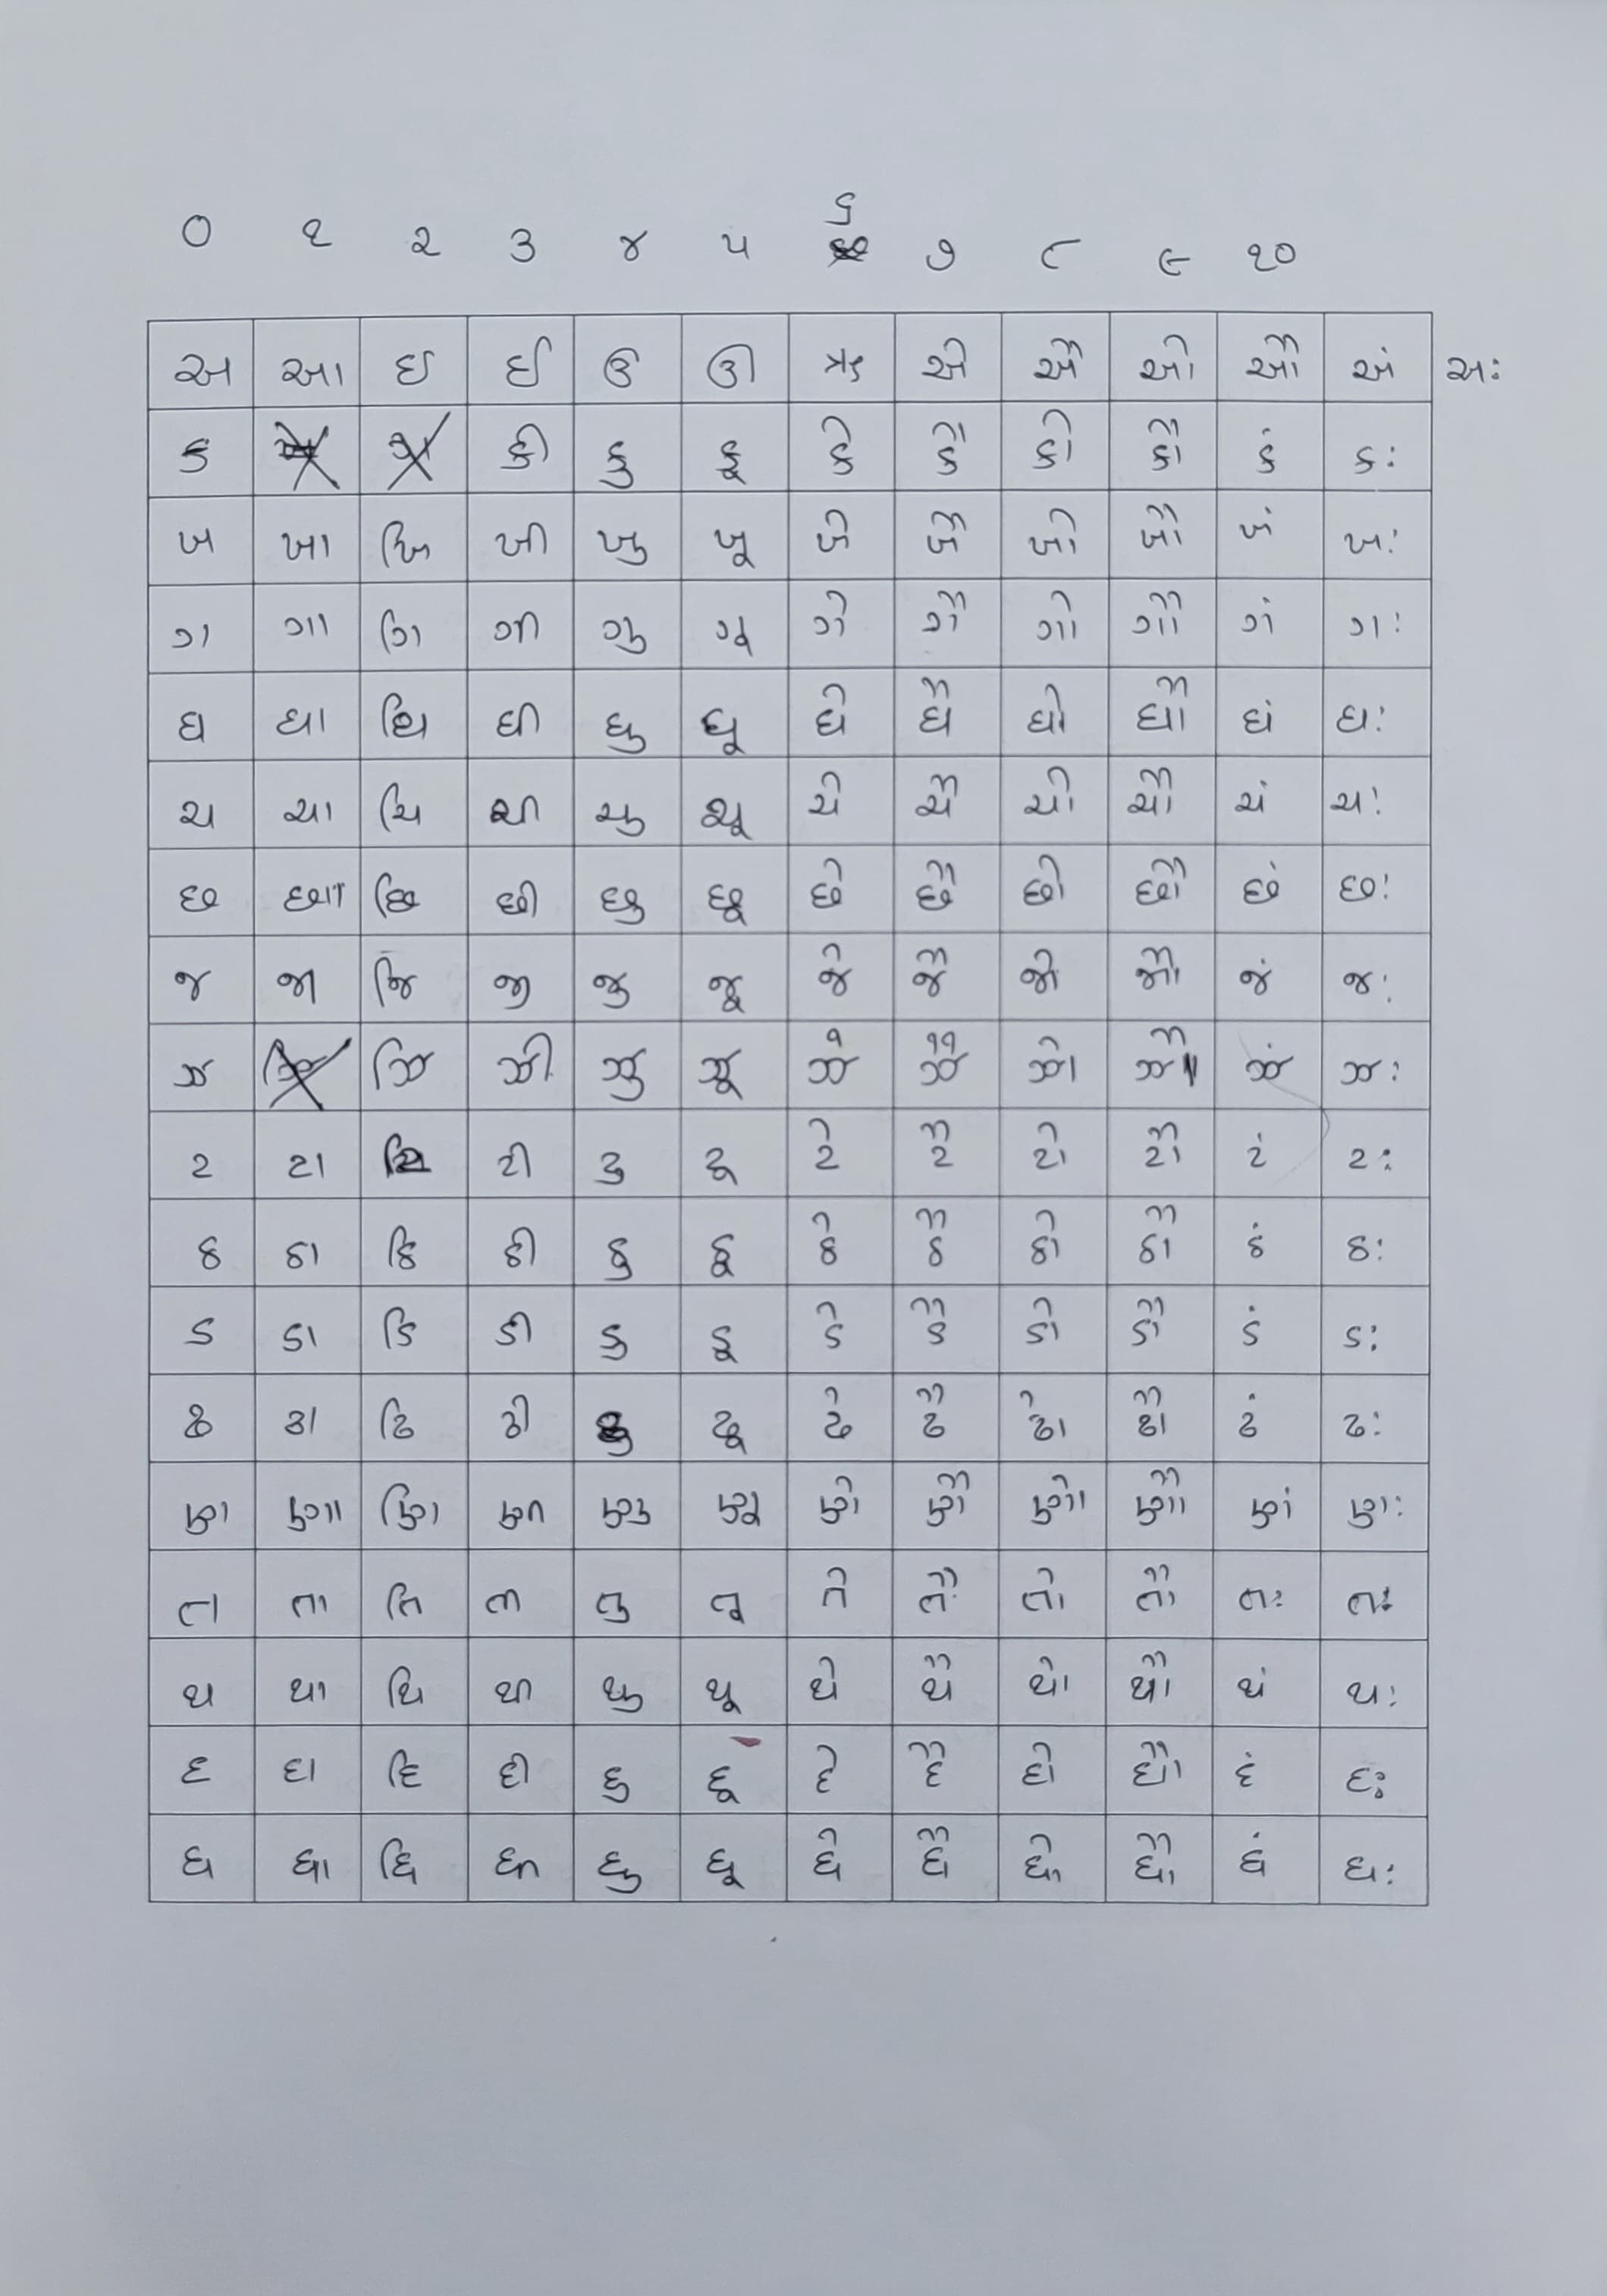 ૦ ૧ ૨ ૩ ૪ ૫ ૬ ૭ ૮ ૯ ૧૦
અ આ ઇ ઈ ઉ ઊ ઋ એ ઐ ઓ ઔ અં અઃ
ક કી કુ કૂ કે કૈ કો કૌ કં કઃ
ખ ખા ખિ ખી ખુ ખૂ ખે ખૈ ખો ખૌ ખં ખઃ
ગ ગા ગિ ગી ગુ ગૂ ગે ગૈ ગો ગૌ ગં ગઃ
ઘ ઘા ઘિ ઘી ઘુ ઘૂ ઘે ઘૈ ઘો ઘૌ ઘં ઘઃ
ચ ચા ચિ ચી ચુ ચૂ ચે ચૈ ચો ચૌ ચં ચઃ
છ છા છિ છી છુ છૂ છે છૈ છો છૌ છં છઃ
જ જા જિ જી જુ જૂ જે જૈ જો જૌ જં જઃ
ઝ ઝિ ઝી ઝુ ઝૂ ઝે ઝૈ ઝો ઝૌ ઝં ઝઃ
ટ ટા ટિ ટી ટુ ટૂ ટે ટૈ ટો ટૌ ટં ટઃ
ઠ ઠા ઠિ ઠી ઠુ ઠૂ ઠે ઠૈ ઠો ઠૌ ઠં ઠઃ
ડ ડા ડિ ડી ડુ ડૂ ડે ડૈ ડો ડૌ ડં ડઃ
ઢ ઢા ઢિ ઢી ઢુ ઢૂ ઢે ઢૈ ઢો ઢૌ ઢં ઢઃ
ણ ણા ણિ ણી ણુ ણૂ ણે ણૈ ણો ણૌ ણં ણઃ
ત તા તિ તી તુ તૂ તે તૈ તો તૌ તઃ તઃ
થ થા થિ થી થુ થૂ થે થૈ થો થૌ થં થઃ
દ દા દિ દી દુ દૂ દે દૈ દો દૌ દં દઃ
ધ ધા ધિ ધી ધુ ધૂ ધે ધૈ ધો ધૌ ધં ધઃ